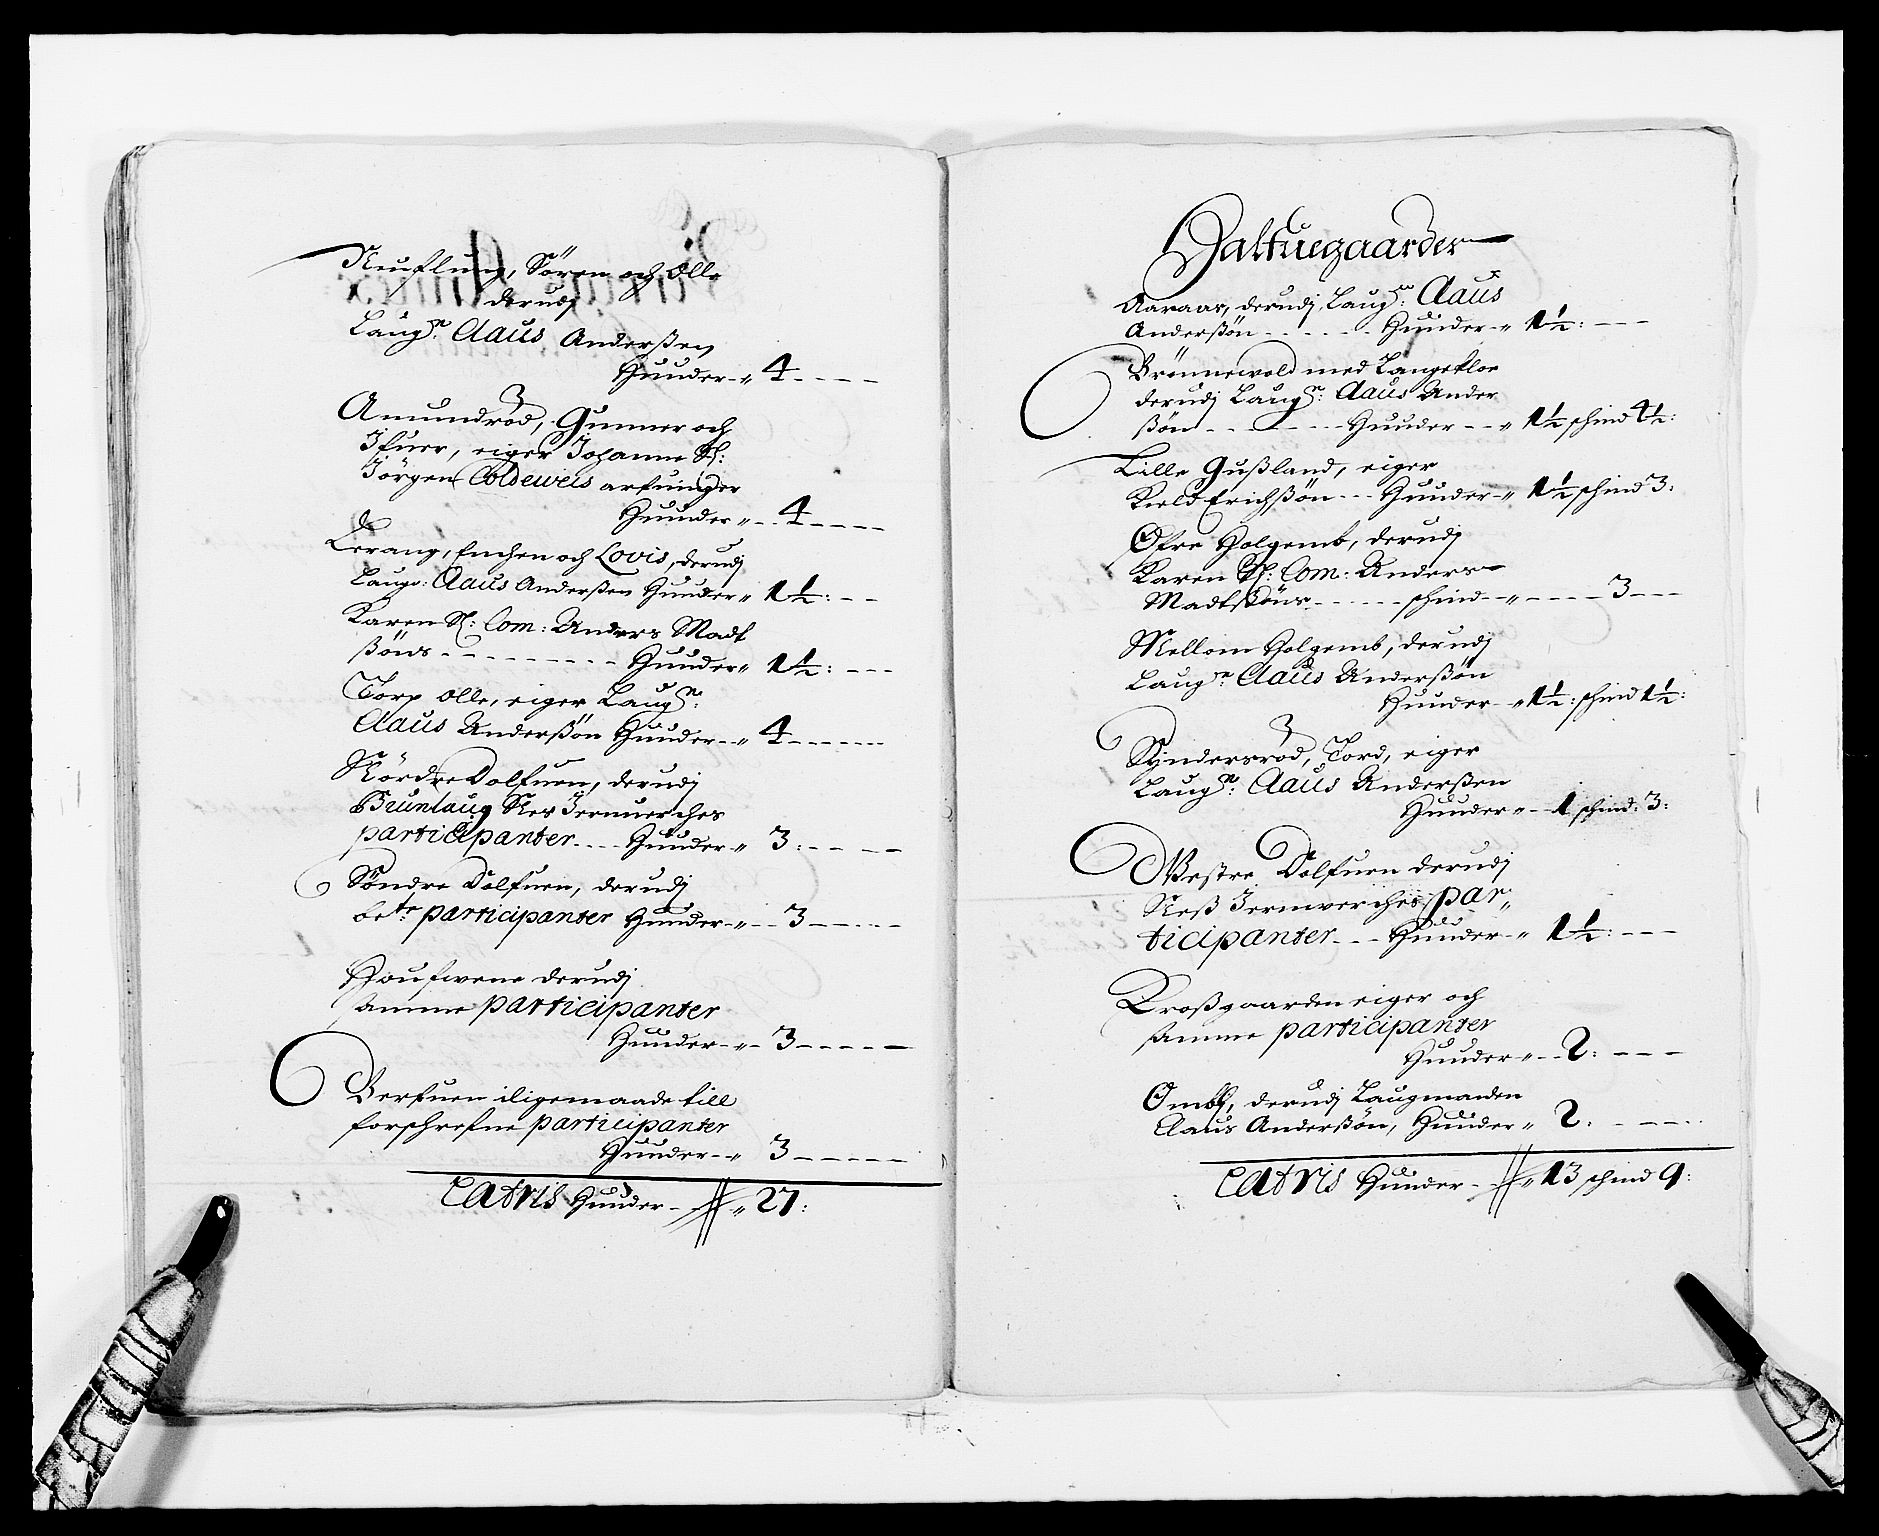 Neuflung, Sören och Olle
derudj
Laugm: Claus Anderßen
Huuder - „ 4 - - - -
Amundrød, Gunner och
Ifuer, eiger Johanne Sl:
Jörgen Coldeweis arfuinger
Huuder „ - - 4 - - - - -
Lerang, Enchen och Lovis, derudj
Laugm: Claus Anderßen Huuder „ 1½: - - -
Karen Sl: Com: Anders Madt
ßöns - - - - - - - - - Huuder „ 1½: - - -
Torp Olle, eiger Laugm:
Claus Anderßön Huuder - „ 4 - - - - - -
Nördre Dolfuen, derudj
Brunlaug Nes Jernuerches
participanter - - - - Huuder - „ 3: - - - - -
Søndre Dolfuen, derudj
bete: participanter Huuder - „ - - 3 - - - - -
Houfwene derudj
samme participanter
Huuder - „ - 3 - - - - -
Berfuen iligemaade till
forschrefne participanter
Huuder - - „ 3 - - - - -
Latris Huuder - „ 27:
Halfuegaarder
Aaraas, derudj, Laugm: Claus
Anderßön - - - - - - Huuder - „ 1½: - - -
Brönnewold med Langekloe
derudj Laugm: Claus Ander
ßön - - - - - - - - Huuder - - „ 1½ schind 4½:
Lille Gußland, eiger
Kield Erichßön - - - Huuder - „ 1½ schind 3:
Ofre Holgemb, derudj
Karen Sl: Com: Anders
Madtßöns - - - - - - schind - - „ - - - - - 3 - - -
Mellom Holgemb, derudj
Laugm: Claus Anderßön
Huuder - „ 1½: schind 1½:
Skindersrød, Tord, eiger
Laugm: Claus Anderßen
Huuder „ - - 1 schind: 3:
Westre Dolfuen derudj
Neß Jernwerches par„
ticipanter - - - Huuder - „ 1½: - - -
Kroßgaarden eiger och
samme participanter
Huuder „ - - 2: - - - -
Ombj, derudj Laugmanden
Claus Anderßön, Huuder „ 2: - - - -
Latris Huuder - „ 13 schind 9: